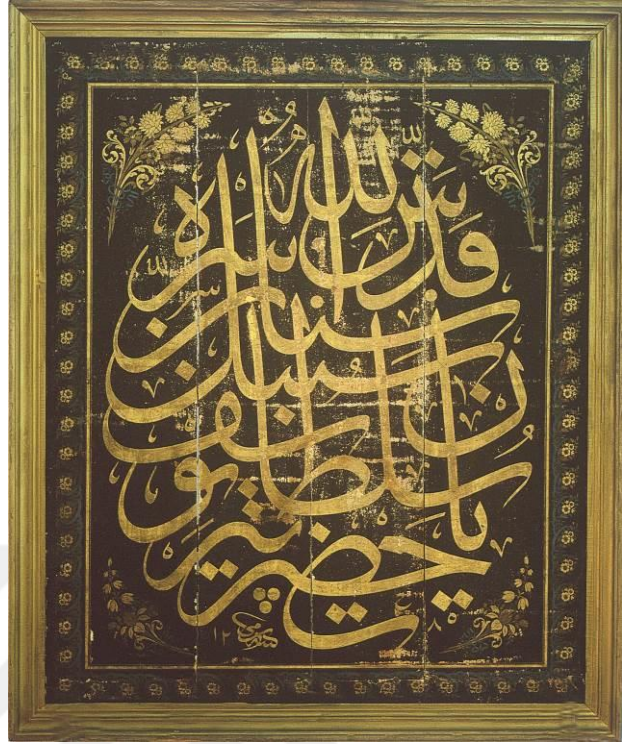 يا حضرت پير
سلطان يوسف
سنبل سنان
قدس الله سره